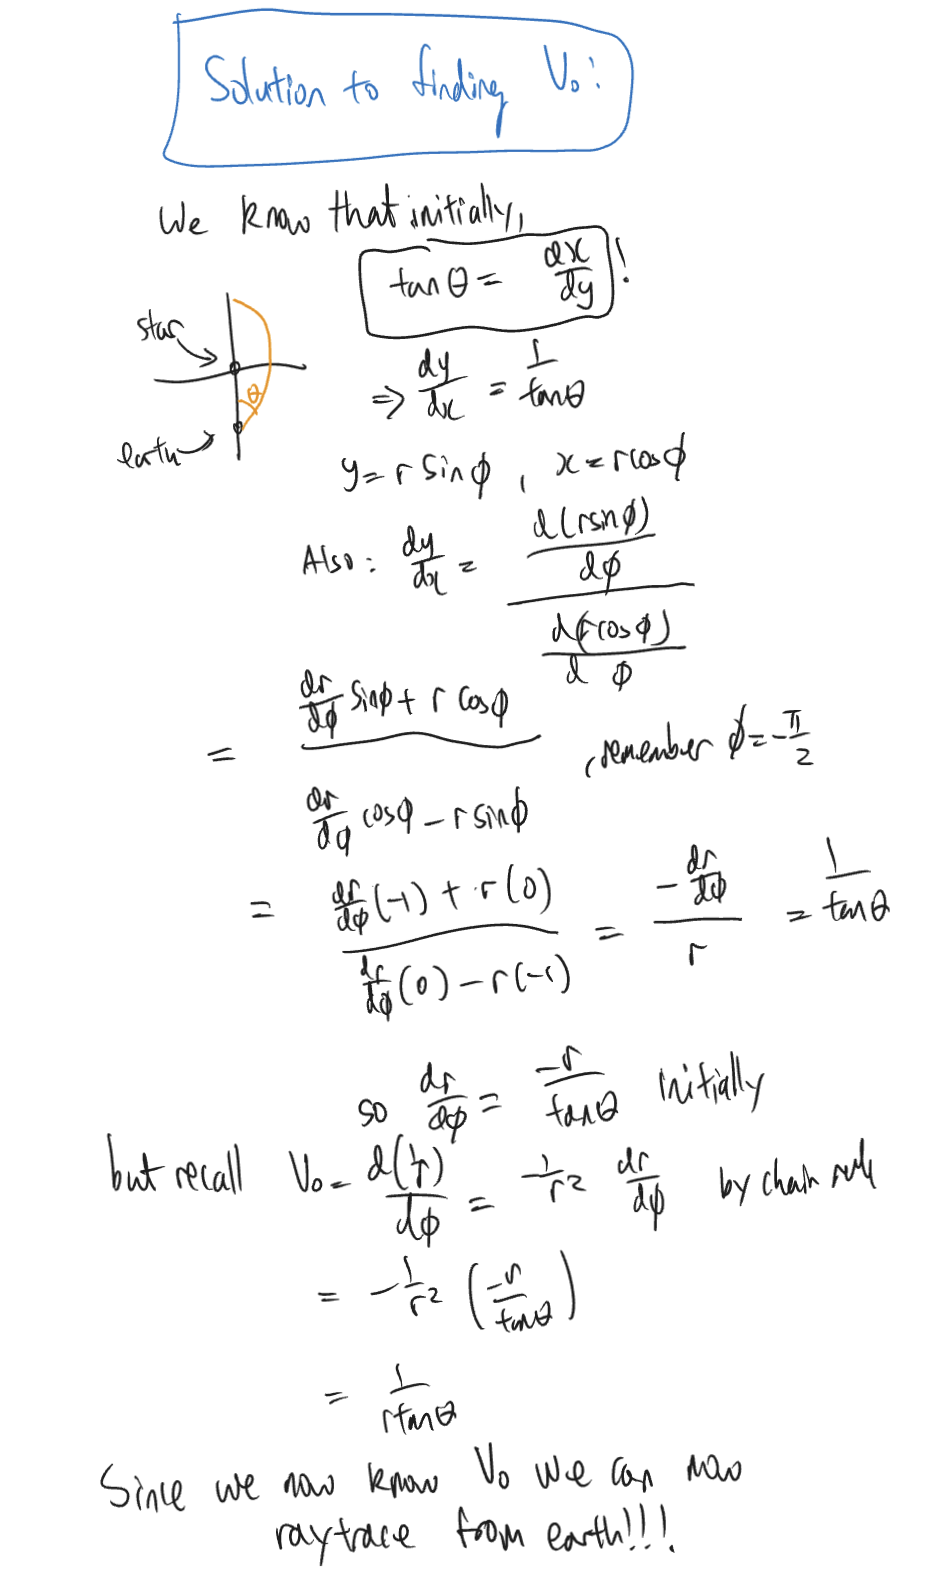 Solution to finding V₀:
We know that initially,
tan θ = dx/dy !
star
⇒ dy/dx = 1/tanθ
θ
earth
y = r sin ϕ , x = r cos ϕ
Also : dy/dx = (d(r sin ϕ)/dϕ) / (d(r cos ϕ)/dϕ)
= (dr/dϕ sinϕ + r cos ϕ) / (dr/dϕ cosϕ - r sinϕ) , remember ϕ = -π/2
= (dr/dϕ (-1) + r(0)) / (dr/dϕ (0) - r(-1)) = (-dr/dϕ) / r = 1/tanθ
so dr/dϕ = -r/tanθ initially
but recall V₀ = d(1/r)/dϕ = -1/r² dr/dϕ by chain rule
= -1/r² (-r/tanθ)
= 1/(r tanθ)
Since we now know V₀ we can now
raytrace from earth!!!